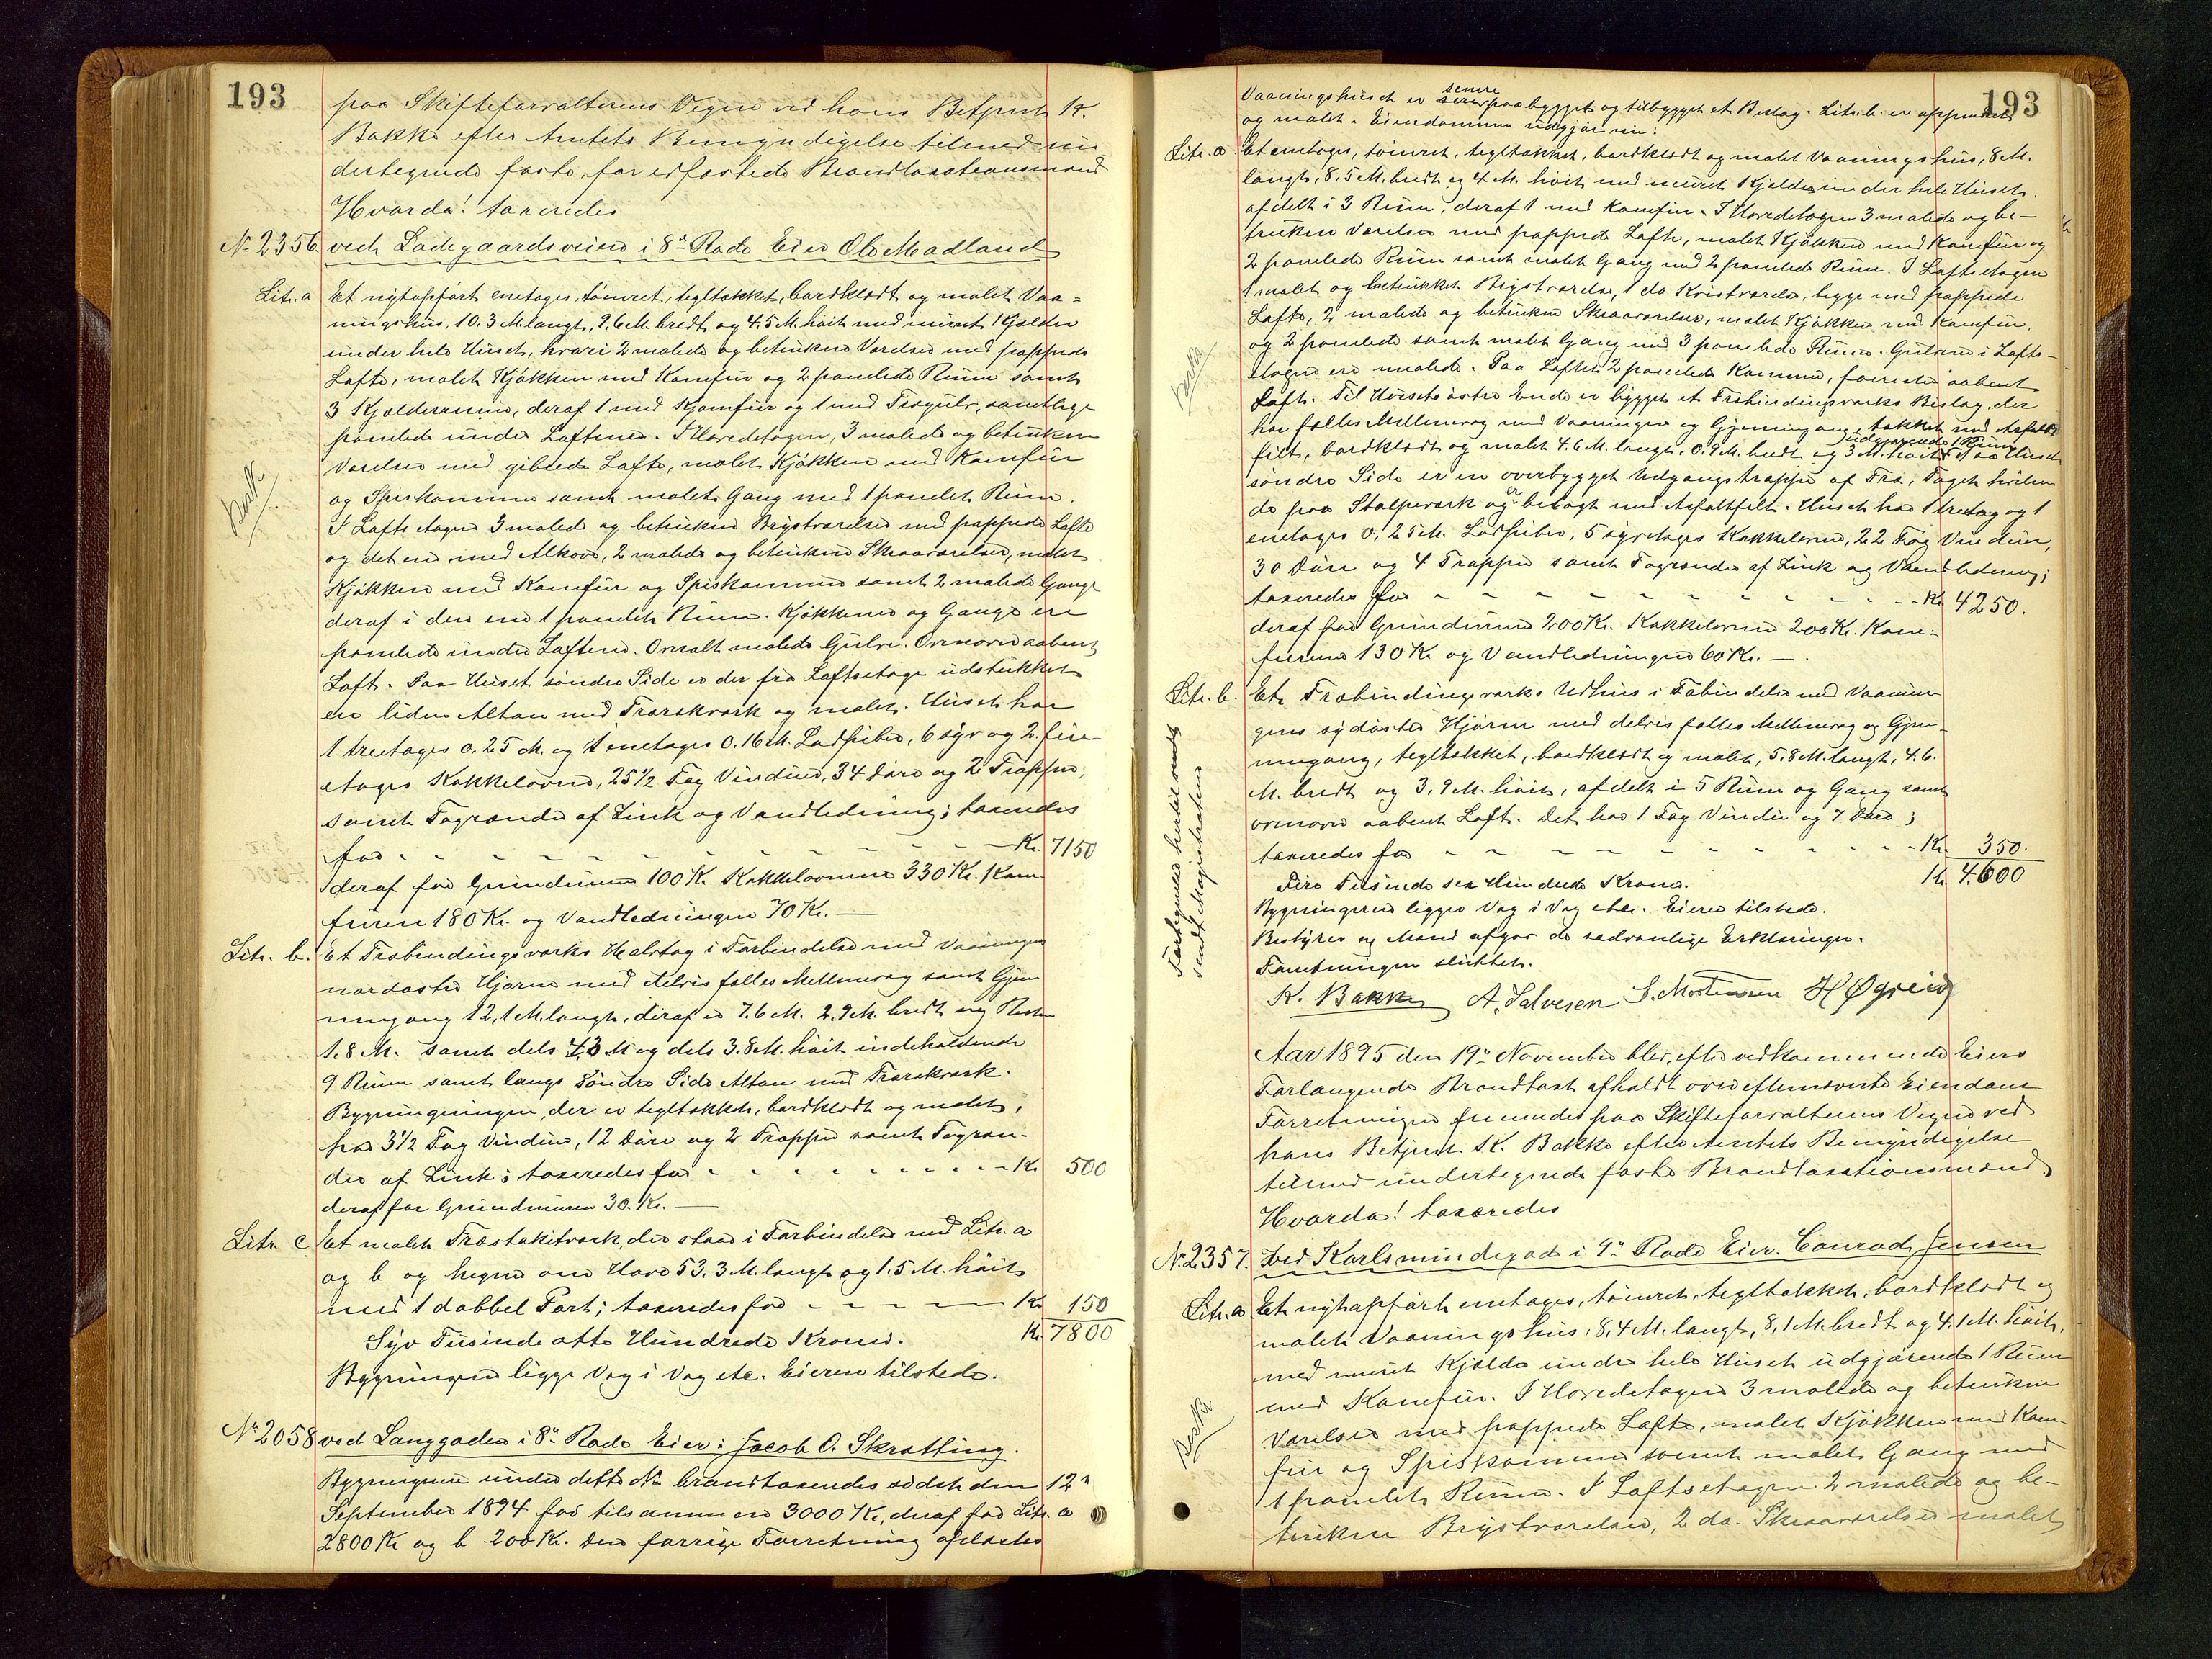 193
paa Skifteforvalterens Vegne ved hans Betjent K.
Bakke efter Amtets Bemyndigelse tilmed un
dertegnede faste, for edfæstede Brandtaxationsmænd
Hvorda! taxeredes
No 2356 ved Ladegaardsveien i 8de Rode Eier Ole Madland
Litr. a Et nyopført enetages, tømret, tegltækket, bordklædt og malet Vaa-
ningshus, 10.3 M. langt, 9.6 M. bredt og 4.5 M. høit med muret Kjælder
under hele Huset, hvori 2 malede og betrukne Værelser med pappede
Lofte, malet Kjøkken med Komfur og 2 panelede Rum samt
3 Kjælderrum, deraf 1 med Komfur og 1 med Trægulv, samtlige
panelede under Lofterne. I Hovedetagen, 3 malede og betrukne
Værelser med gibsede Lofte, malet Kjøkken med Komfur
og Spiskammer samt malet Gang med 1 panelet Rum.
I Loftsetagen 3 malede og betrukne Brystværelser med pappede Lofte
og det ene med Alkove, 2 malede og betrukne Skraaværelser, malet
Kjøkken med Komfur og Spiskammer samt 2 malede Gange
deraf i den ene 1 panelet Rum. Kjøkkener og Gange ere
panelede under Lofterne. Overalt malede Gulve. Ovenover aabent
Loft. Paa Huset søndre Side er der fra Loftsetage udstukket
en liden Altan med Trærækværk og malet. Huset har
1 treetages 0.25 M. og 1 enetages 0.16 M. Ladpiber, 6 syv og 2 fire-
etages Kakkelovne, 25 1/2 Fag Vinduer, 34 Døre og 2 Trapper,
samt Tagrender af Zink og Vandledning; taxeredes
for - - - - - - - - - - Kr. 7150
deraf for Grundmuren 100 Kr. Kakkelovnene 330 Kr. Kom-
furen 180 Kr. og Vandledningen 70 Kr. —
Litr. b. Et Træbindingsverks Halvtag i Forbindelse med Vaaningens
nordøstre Hjørne med delvis fælles Mellemvæg samt Gjen
nemgang 12,1 M. langt, deraf er 7.6 M. 2.9 M. bredt og Resten
1.8 M. samt dels 4,3 M og dels 3.8 M. høit indeholdende
9 Rum samt langs Søndre Side Altan med Træræk­værk.
Bygningningen, der er tegltækket, bordklædt og malet,
har 3 1/2 Fag Vinduer, 12 Døre og 2 Trapper samt Tagren-
der af Zink; taxeredes for - - - - - - - - - Kr 500
deraf for Grundmuren 30. Kr. —
Litr. c Et malet Træstakitværk, der staar i Forbindelse med Litr. a
og b og hegner om Have 53.3 M. langt og 1.5 M. høit
med 1 dobbel Port; taxeredes for - - - - - Kr 150
Syv Tusinde otte Hundrede Kroner. Kr. 7800
Bygningen ligge Væg i Væg etc. Eieren tilstede.
Beske
No 2058 ved Langgaden i 8de Rode Eier: Jacob O. Skrætting.
Bygningerne under dette No brandtaxeredes sidst den 12te
September 1894 for tilsammen 3000 Kr, deraf for Litr. a
2800 Kr og b 200 Kr. Den forrige Forretning oplæstes
193
Vaaningshuset er senere paabygget og tilbygget et Beslag. Litr. b. er oppudset
og malet. Eiendommen udgjør nu:
Litr. a Et enetages, tømret, tegltækket, bordklædt og malet Vaaningshus, 8 M.
langt, 8.5 M. bredt og 4 M. høit med muret Kjelder under hele Huset.
afdelt i 3 Rum, deraf 1 med Komfur. I Hovedetagen 3 malede og be-
trukne Værelser med pappede Lofte, malet Kjøkken med Komfur og
2 panelede Rum samt malet Gang med 2 panelede Rum. I Loftsetagen
1 malet og betrukket Brystværelse, 1 do Kvistværelse, begge med pappede
Lofte, 2 malede og betrukne Skraaværelser, malet Kjøkken med Komfur.
og 2 panelede samt malet Gang med 3 panelede Rum. Gulvene i Lofts-
etagen ere malede. Paa Loftet 2 panelede Kammer, forresten aabent
Loft. Til Husets østre Ende er bygget et Træbindingsværks Beslag, der
har fælles Mellemvæg med Vaaningen og Gjennemgang, tækket med Asfalt
filt, bordklædt og malet 4.6 M. langt, 0.9 M. bredt og 3 M. høit udgjørende 1 Rum. Paa Husets
søndre Side er en overbygget Udgangstrappe af Træ, Taget hvilen
de paa Stolpeværk og er belagt med Asfaltfilt. Huset har 1 treetag og 1
enetages 0.25 M. Ladpiber, 5 syvetages Kakkelovne, 22 Fag Vinduer,
30 Døre og 4 Trapper samt Tagrender af Zink og Vandledning;
taxeredes for - - - - - - - - - Kr 4250.
deraf for Grundmuren 200 Kr. Kakkelovnene 200 Kr. Kom-
furene 130 Kr og Vandledningen 60 Kr. —.
Beske
Litr. b. Et Træbindingsværks Udhus i Fobindelse med Vaanin
gens sydøstre Hjørne med delvis fælles Mellemvæg og Gjen-
nemgang, tegltækket, bordklædt og malet, 5.8 M. langt, 4.6.
M. bredt og 3,9 M. høit, afdelt i 5 Rum og Gang samt
ovenover aabent Loft. Det har 1 Fag Vindu og 7 Døre;
taxeredes for - - - - - - - - - - Kr. 350.
Fire Tusinde sex Hundrede Kroner. Kr 4600
Bygningerne ligger Væg i Væg etc. Eieren tilstede.
Bestyrer og Mænd afgav de sædvanlige Erklæringer.
Forretningen sluttet.
K. Bakke A. Salvesen S. Mortensen H Øgreid
Fortegnelse hertil sendt
sendt Magistraten
Aar 1895 den 19de November blev, efter vedkommende Eiers
Forlangende Brandtaxt afholdt over eftermævnte Eiendom
Forretningen fremmedes paa Skifteforvalterens Vegne ved
hans Betjent K. Bakke efter Amtets Bemyndigelse
tilmed undertegnede faste Brandtaxationsmænd
Hvorda! taxeredes
No. 2357. ved Karlsmindegade i 9de Rode Eier. Conrad Jensen
Litr. a Et nyopført enetages, tømret, tegltækket, bordklædt og
malet Vaaningshus, 8,4 M. langt, 8,1 M. bredt og 4.1 M. høit,
med muret Kjælder under hele Huset udgjørende 1 Rum
med Komfur. I Hovedetagen 3 malede og betrukne
Værelser med pappede Lofte, malet Kjøkken med Kom-
fur og Spiskammer samt malet Gang med
1 panelet Rum. I Loftsetagen 2 malede og be-
trukne Brystværelser, 2 do. Skraaværelser malet
Beske